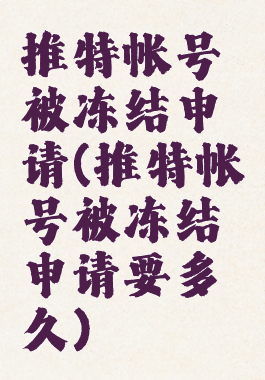 推特帐号
被冻结申
请(推特帐
号被冻结
申请要多
久)